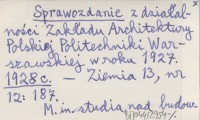 Sprawozdanie z działal-
ności Zakładu Architektury
Polskiej Politechniki War-
szawskiej w roku 1927.
1928 r. — Ziemia 13, nr
12: 187.
M. in. studia nad budow.